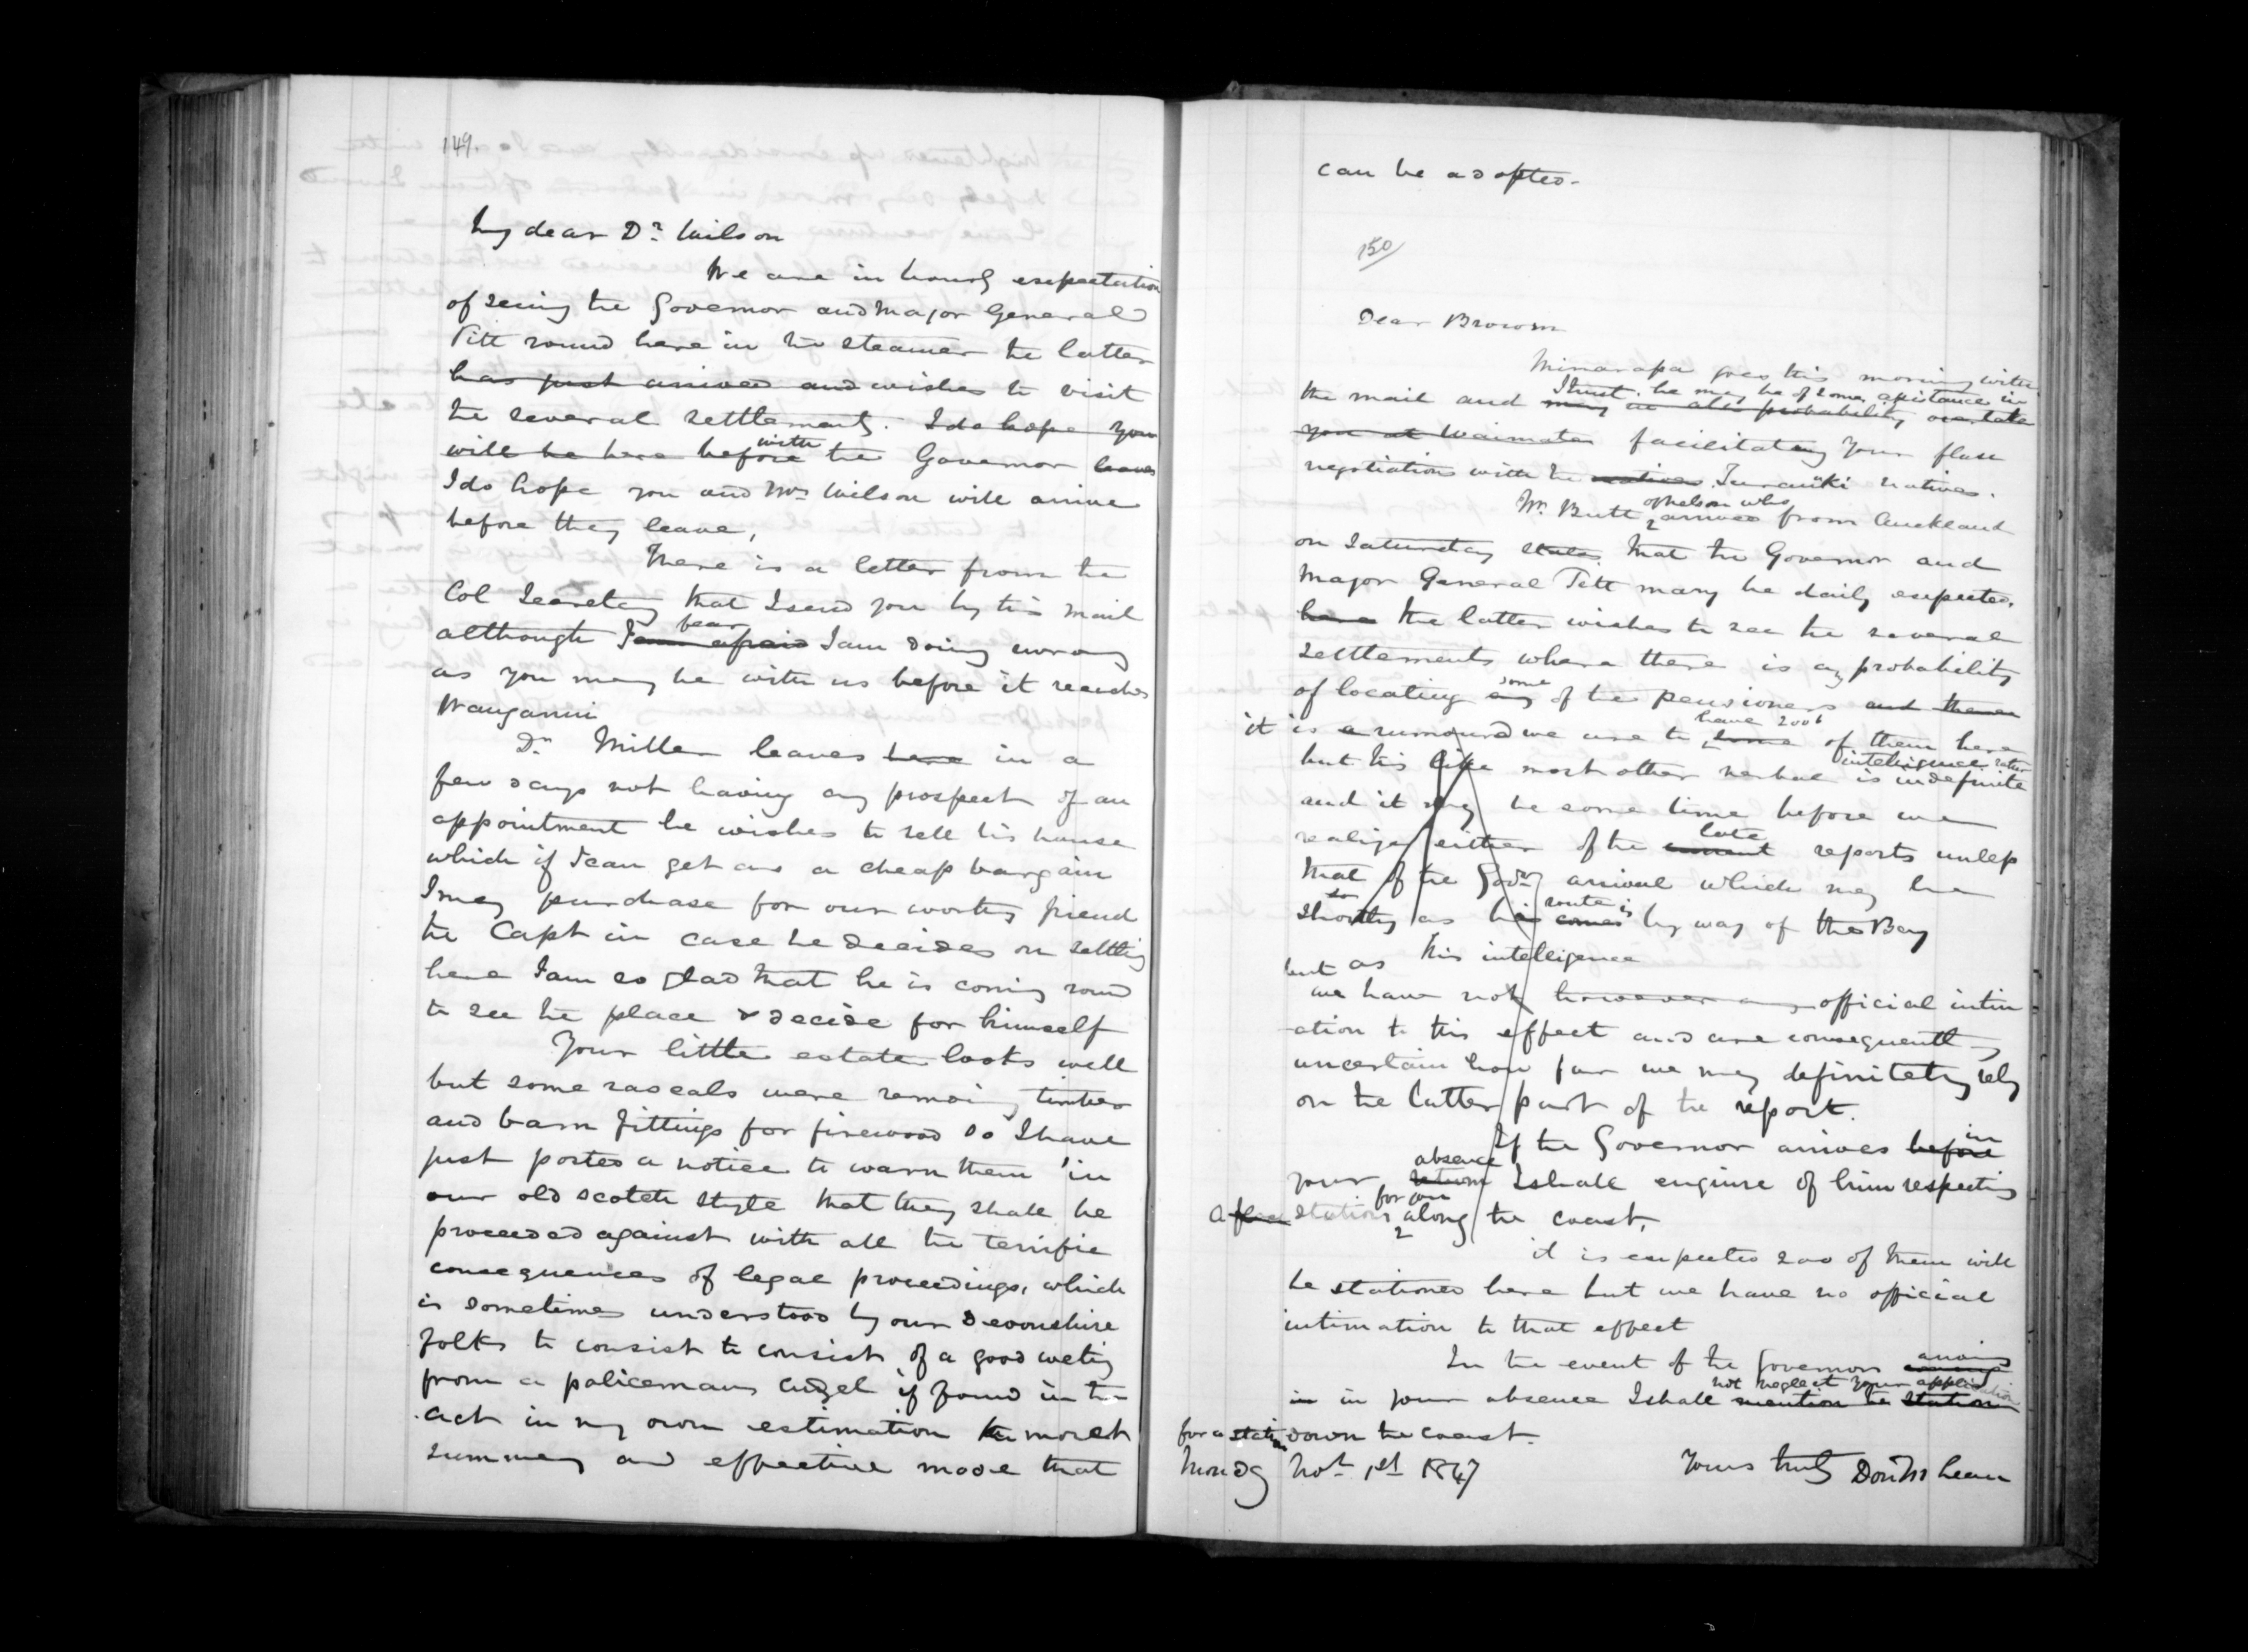 149.
My dear Dr. Wilson
We are in hourly expectation
of seeing the Governor and Major General
Pitt round here in the steamer the latter
has just arrived and wishes to visit
the several settlements. I do hope you
will be here before with the Governor leaves
I do hope you and Mrs Wilson will arrive
before they leave,
There is a letter from the
Col Secretary that I send you by this mail
although I am afraid fear I am doing wrong
as you may be with us before it reaches
Wanganui
Dr. Miller leaves here in a
few days not having any prospect of an
appointment he wishes to sell his house
which if I can get as a cheap bargain
I may purchase for our worthy friend
the Capt in case he decides on settling
here I am so glad that he is coming round
to see the place & decide for himself
Your little estate looks well
but some rascals were removing timber
and barn fittings for firewood so I have
just posted a notice to warn them in
our old scotch style that they shall be
proceeded against with all the terrific
consequences of legal proceedings, which
is sometimes understood by our Devonshire
folks to consist to consist of a good
from a policemans cudgel if found in the
act in my own estimation the most
summary and effective mode that
can be adopted.
150
Dear Brown
Minarapa goes this morning with
the mail and may in all probability overtake I trust he may be of some assistance in
you at Waimate facilitating your flax
negotiations with the natives Taranaki natives.
Mr. Butt of Nelson who arrived from Auckland
on Saturday states that the Governor and
Major General Pitt may be daily expected.
here the latter wishes to see the several
settlements where there is any probability
of locating any some of the pensioners and there
it is a rumoured we are to have 200 some of them here
but this like most other verbal intelligence is rather indefinite
and it may be some time before we
realize either of the current late reports unless
that of the Govrs arrival which may be
so shortly as his comes route is by way of the Bay
but as this intelligence
we have not however any official intim-
ation to this effect and are consequently
uncertain how far we may definitely rely
on the latter part of the report.
If the Governor arrives before in
your return absence I shall enquire of him respecting
a flax station for you along the coast,
it is expected 200 of them will
be stationed here but we have no official
intimation to that effect
In the event of the Governors arriving
in in your absence I shall mention the station not neglect your application
for a station down the coast.
Monday Nov 1st 1847 Yours truly Don McLean